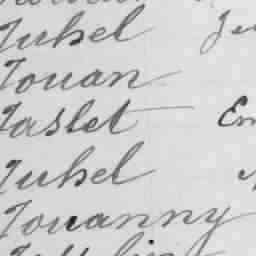 Juhel Je
Jouan
Jaslet Em
Juhel
Jouanny